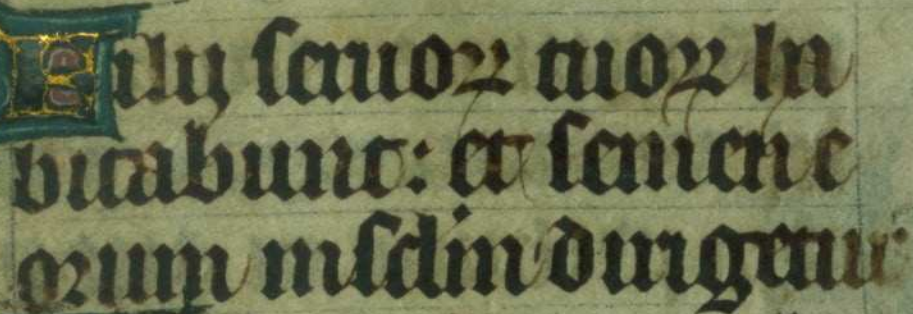 Filij ſeruoꝝ tuoꝝ ha
bitabunt: et ſemen e
orum inſclm dirigetur